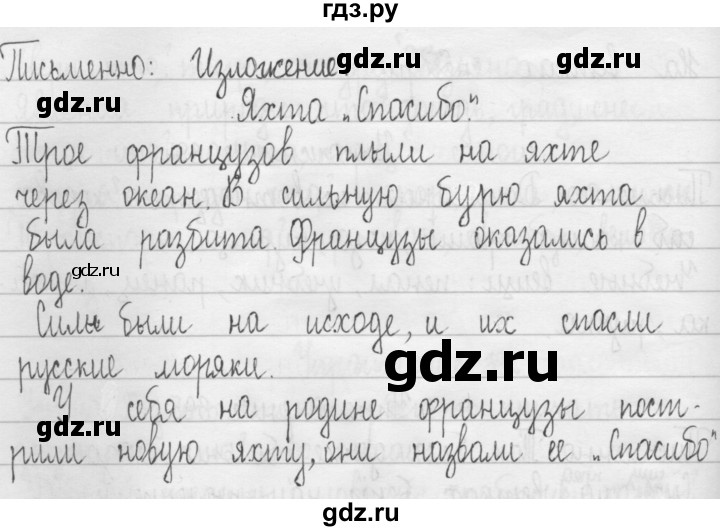 гдз.ру
Письменно: Изложение.
Яхта „Спасибо".
Трое французов плыли на яхте
через океан. В сильную бурю яхта
была разбита. Французы оказались в
воде.
Силы были на исходе, и их спасли
русские моряки.
У себя на родине французы пост-
рили новую яхту, они назвали её „Спасибо"
gdz.ru
gdz.ru
gdz.ru
gdz.ru
gdz.ru
gdz.ru
gdz.ru
gdz.ru
gdz.ru
gdz.ru
gdz.ru
gdz.ru